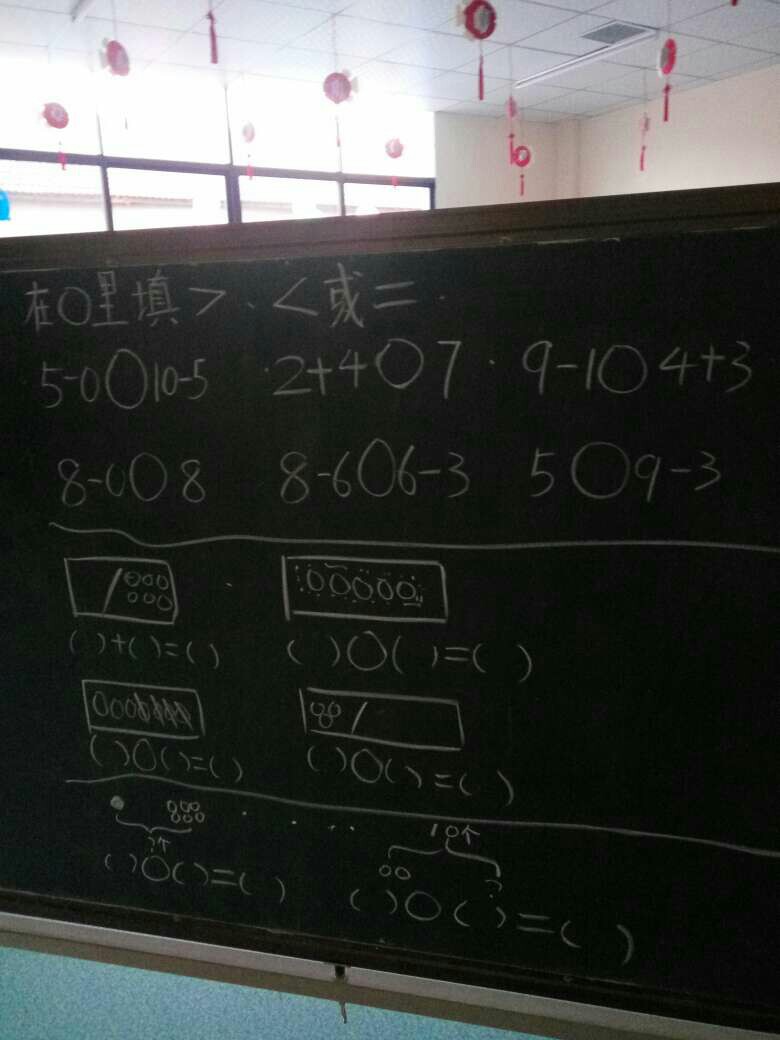 在○里填>.<或=.
5-0○10-5 2+4○7 9-1○4+3
8-0○8 8-6○6-3 5○9-3
( )+( )=( ) ( )○( )=( )
( )○( )=( ) ( )○( )=( )
10个
?个 ?
( )○( )=( ) ( )○( )=( )